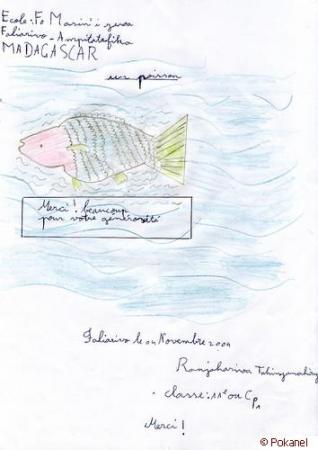 Ecole: Fo Masin'i
Faliarivo - Ampitatafika
MADAGASCAR
un poisson
Merci! beaucoup
pour votre générosité
Faliarivo le 04 Novembre 2004
classe: 11è ou Cp1
Merci!
© Pokanel